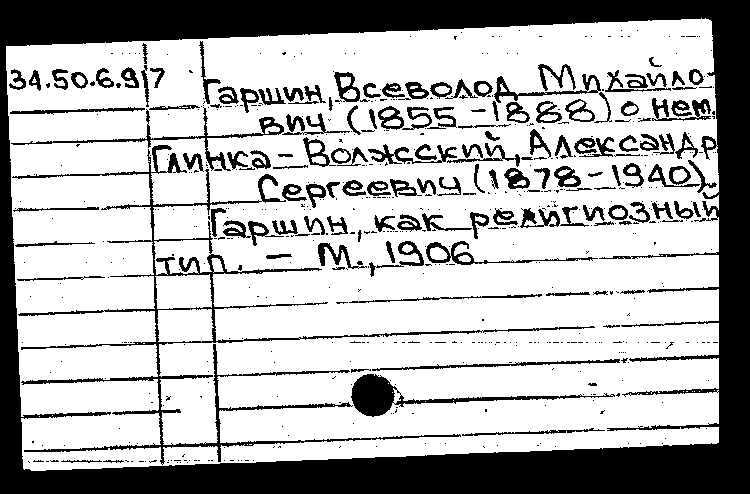 34.50.6.9/7 Гаршин, Всеволод Михайло-
вич (1855-1888) о нем.
Глинка-Волжский, Александр
Сергеевич (1878-1940).
Гаршин, как религиозный
тип. - М., 1906.